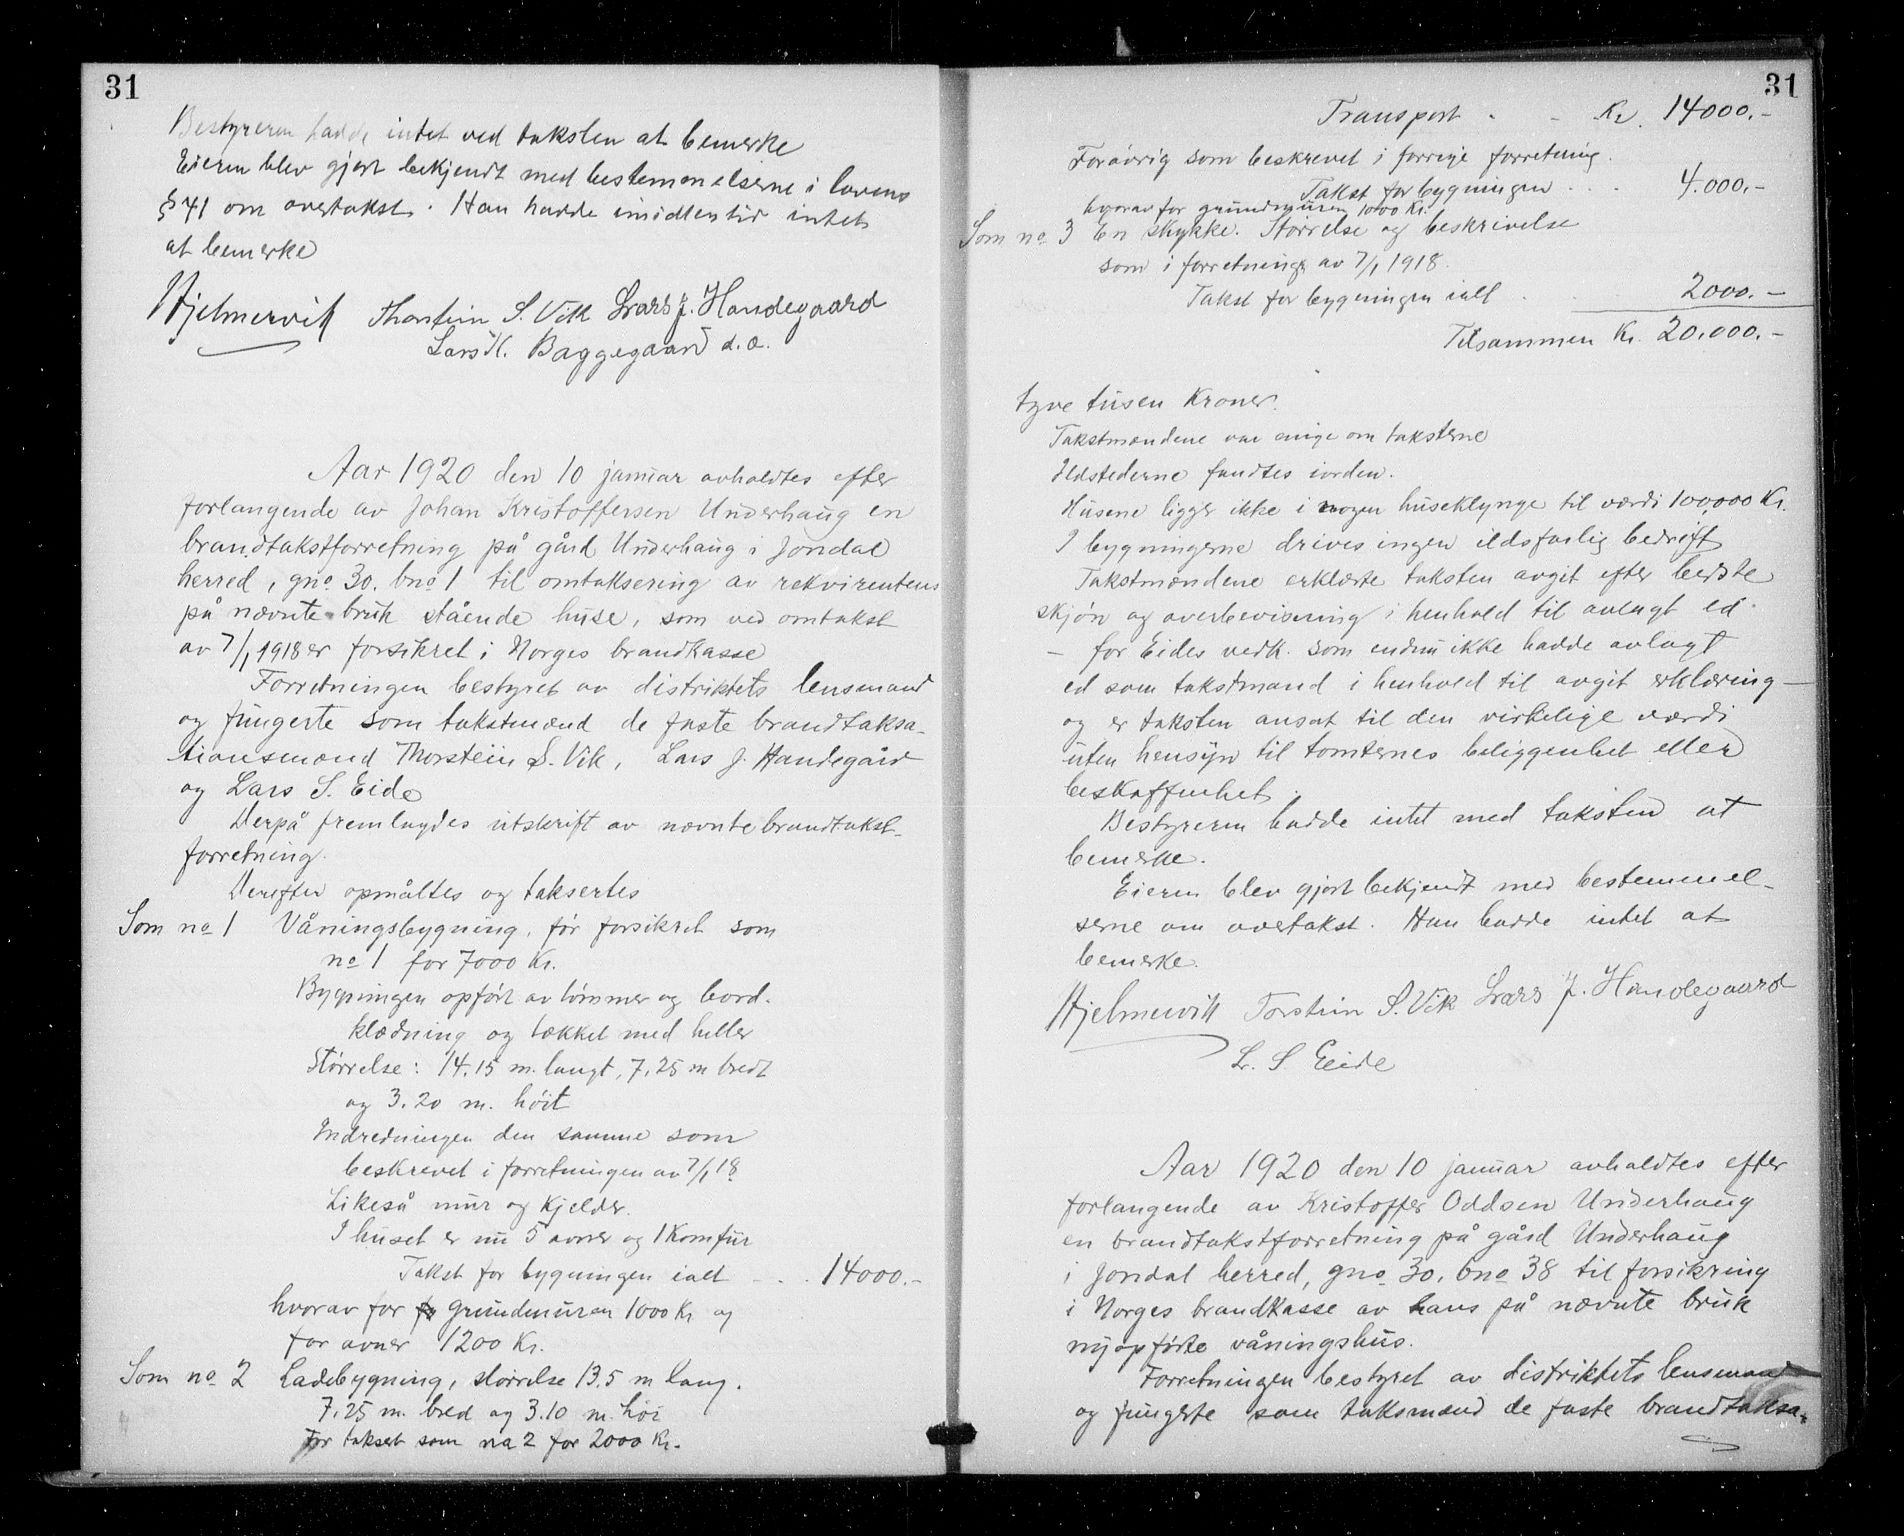 31
Bestyreren hadde intet ved taksten at bemerke
Eieren blev gjort bekjendt med bestemmelserne i lovens
§ 41 om overtakst. Han hadde imidlertid intet
at bemerke
Hjelmervik Thorstein S. Vik Lars J. Handegaard
Lars H. Baggegaard
Aar 1920 den 10 januar avholdtes efter
forlangende av Johan Kristoffersen Underhaug en
brandtakstforretning på gård Underhaug i Jondal
herred, gno. 30. bno 1 til omtaksering av rekvirentens
på nævnte bruk stående huse, som ved omtakst
av 7/1 1918 er forsikret i Norges brandkasse
Forretningen bestyret av distriktets lensmand
og fungerte som takstmænd de faste brandtaksa-
tionsmænd Thorstein S. Vik, Lars J. Handegård
og Lars S. Eide
Derpå fremlagdes utskrift av nævnte brandtakst-
forretning.
Derefter opmåltes og taksertes
Som no 1 Våningsbygning, før forsikret som
no 1 for 7000 Kr.
Bygningen opført av tømmer og bord-
klædning og tækket med heller
Størrelse: 14.15 m. langt, 7.25 m bredt
og 3.20 m. høit
Indredningen den samme som
beskrevet i forretningen av 7/1 18
Likeså mur og kjelder.
I huset er nu 5 ovner og 1 Komfur
Takst for bygningen ialt - . . 14000.-
hvorav for grundmuren 1000 Kr og
for ovner 1200 Kr.
Som no 2 Ladebygning, størrelse 13.5 m lang.
7.25 m. bred og 3.10 m. høi
Før takset som no 2 for 2000 Kr.
31
Transport . - Kr. 14000.-
Forøvrig som beskrevet i forrige forretning.
Takst for bygningen . . . 4.000.-
hvorav for grundmuren 1000 Kr.
Som no 3 En skykke. Størrelse og beskrivelse
som i forretning av 7/1 1918.
Takst for bygningen ialt . . . 2000.-
Tilsammen Kr. 20.000.-
tyve tusen Kroner.
Takstmændene var enige om taksterne
Ildstederne fandtes iorden.
Husene ligger ikke i nogen huseklynge til værdi 100,000 Kr.
I bygningerne drives ingen ildsfarlig bedrift
Takstmændene erklærte taksten avgit efter bedste
skjøn og overbevisning i henhold til avlagt ed
- for Eides vedk. som endnu ikke hadde avlagt
ed som takstmand i henhold til avgit erklæring -
og er taksten ansat til den virkelige værdi
uten hensyn til tomternes beliggenhet eller
beskaffenhet.
Bestyreren hadde intet med taksten at
bemerke.
Eieren blev gjort bekjendt med bestemmel-
serne om overtakst. Han hadde intet at
bemerke.
Hjelmervik Torstein S. Vik Lars J. Handegaard
L. S Eide
Aar 1920 den 10 januar avholdtes efter
forlangende av Kristoffer Oddsen Underhaug
en brandtakstforretning på gård Underhaug
i Jondal herred, gno 30. bno 38 til forsikring
i Norges brandkasse av hans på nævnte bruk
nyopførte våningshus.
Forretningen bestyret av distriktets lensmand
og fungerte som taksmænd de faste brandtaksa-